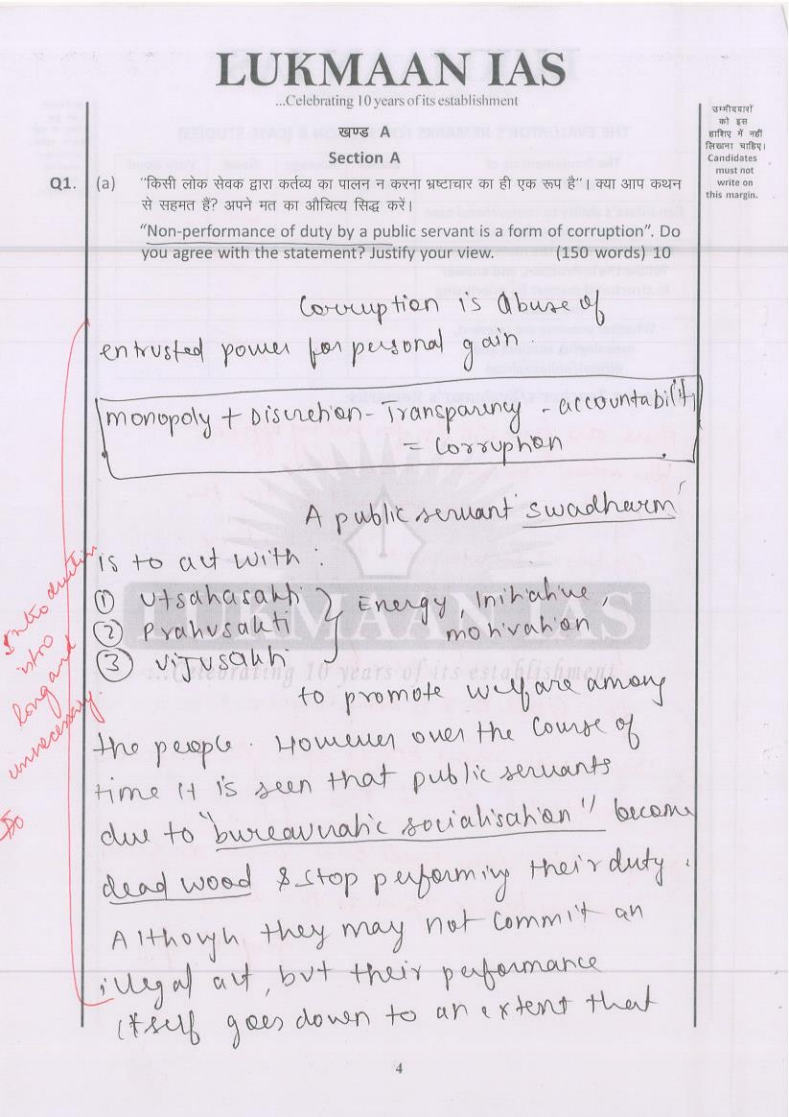 LUKMAAN IAS
...Celebrating 10 years of its establishment
खण्ड A
Section A
उम्मीदवारों
को इस
हाशिए में नहीं
लिखना चाहिए।
Candidates
must not
write on
this margin.
Q1. (a) "किसी लोक सेवक द्वारा कर्तव्य का पालन न करना भ्रष्टाचार का ही एक रूप है"। क्या आप कथन
से सहमत हैं? अपने मत का औचित्य सिद्ध करें।
"Non-performance of duty by a public servant is a form of corruption". Do
you agree with the statement? Justify your view. (150 words) 10
Corruption is Abuse of
entrusted power for personal gain.
Monopoly + Discretion - Transparency - accountability
= Corruption
A public servant 'swadharm'
is to act with :
① Utsahasakti
② Prahusakti
③ Vijusakti
Energy Initiative,
motivation
to promote welfare among
the people. However over the course of
time it is seen that public servants
due to "bureaucratic socialisation" become
dead wood & stop performing their duty.
Although they may not commit an
illegal act, but their performance
itself goes down to an extent that
Introduction
is too
long and
unnecessary
LUKMAAN IAS
...Celebrating 10 years of its establishment
4